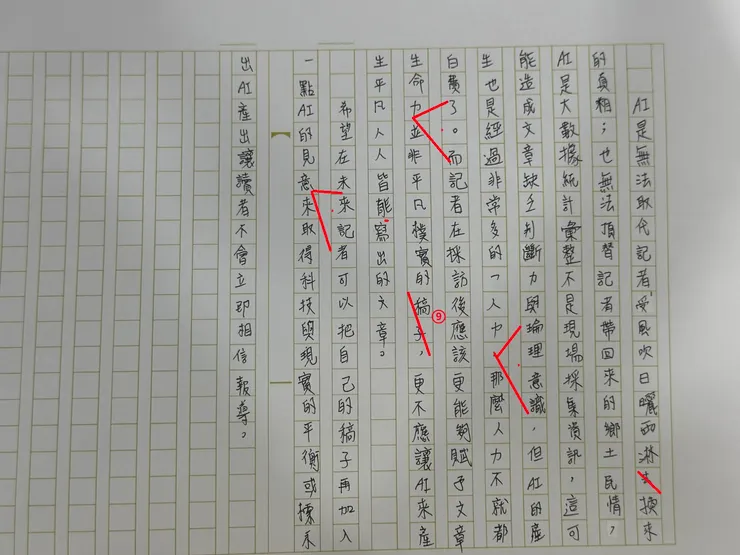 AI是無法取代記者受風吹日曬雨淋去換來
的真相；也無法頂替記者帶回來的鄉土民情，
AI是大數據統計彙整不是現場採集資訊，這可
能造成文章缺乏判斷力與倫理意識，但AI的產
生也是經過非常多的「人力」那麼人力不就都
白費了。而記者在採訪後應該更能夠賦予文章
生命力並非平凡樸實的稿子，更不應讓AI來產
生平凡人人皆能寫出的文章。
希望在未來記者可以把自己的稿子再加入
一點AI的見意來取得科技與現實的平衡或揀末
出AI產出讓讀者不會立即相信報導。
⑨